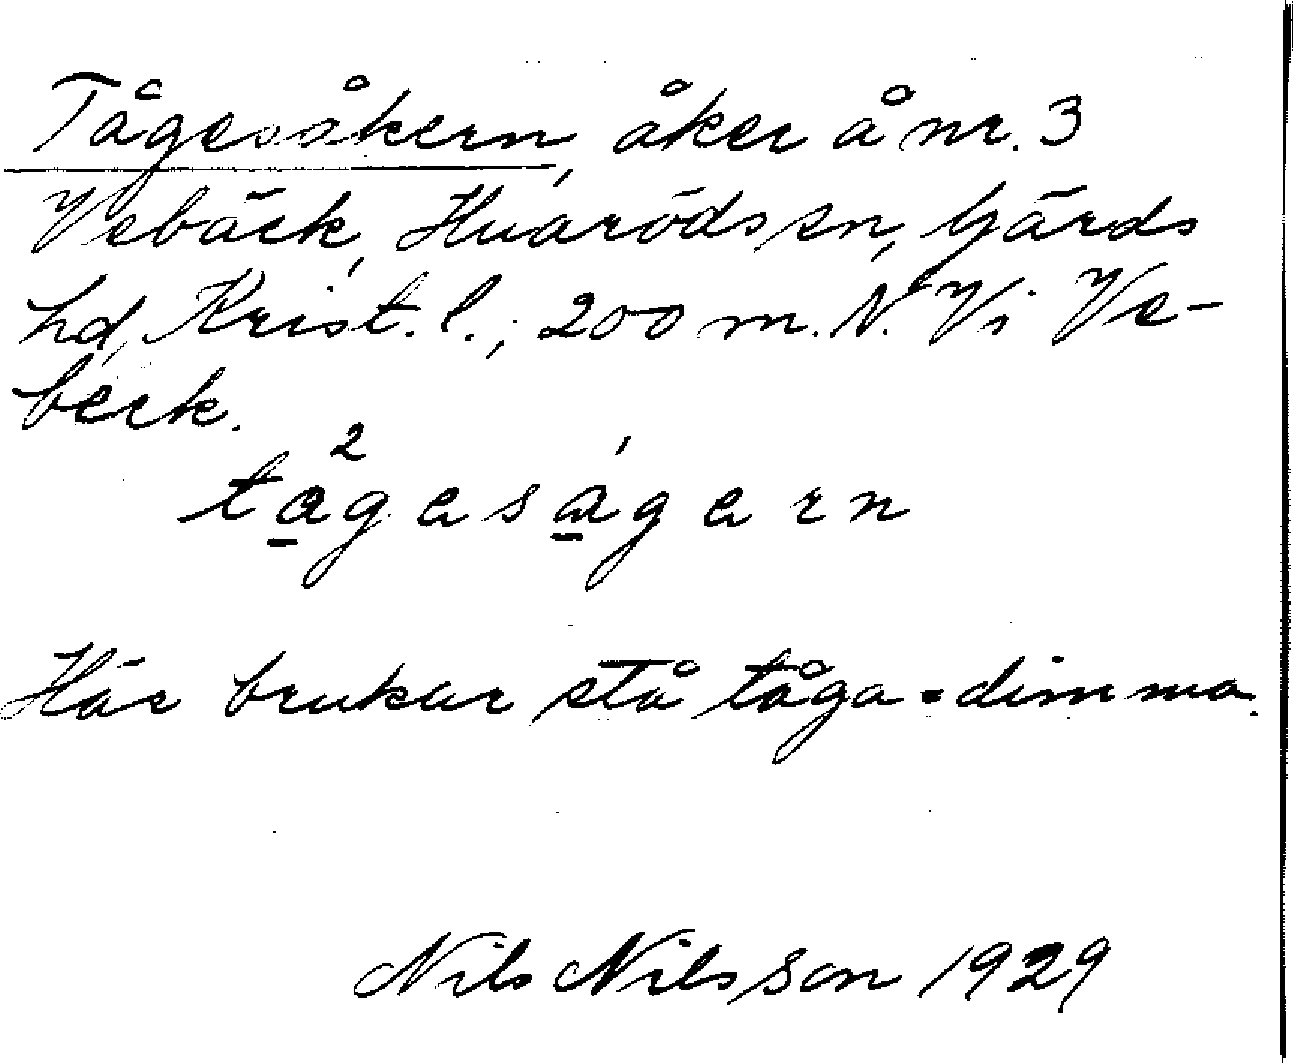 Tågesåkern, åker å nr. 3
Vebäck, Huaröds sn, Gärds
hd, Krist. l.; 200 m. N. Vi Ve-
beck.
tågesågern
Här brukar stå tåga = dimma.
Nils Nilsson 1929